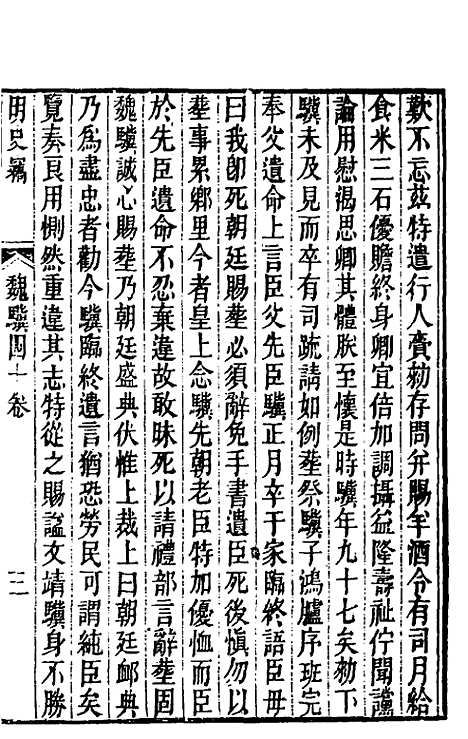 歎不忘茲特遣行人賫勑存問并賜羊酒令有司月給
食米三石優贍終身卿宜倍加調攝益隆壽祉佇聞讜
論用慰渴思卿其體朕至懷是時驥年九十七矣勑下
驥未及見而卒有司疏請如例塟祭驥子鴻臚序班完
奉父遺命上言臣父先臣驥正月卒于家臨終語臣毋
曰我即死朝廷賜塟必須辭免手書遺臣死後愼勿以
塟事累鄉里今者皇上念驥先朝老臣特加優恤而臣
於先臣遺命不忍棄違故敢昧死以請禮部言辭塟固
魏驥誠心賜塟乃朝廷盛典伏惟上裁上曰朝廷卹典
乃爲盡忠者勸今驥臨終遺言猶恐勞民可謂純臣矣
覽奏良用惻然重違其志特從之賜謚文靖驥身不勝
明史竊
魏驥四十卷
二